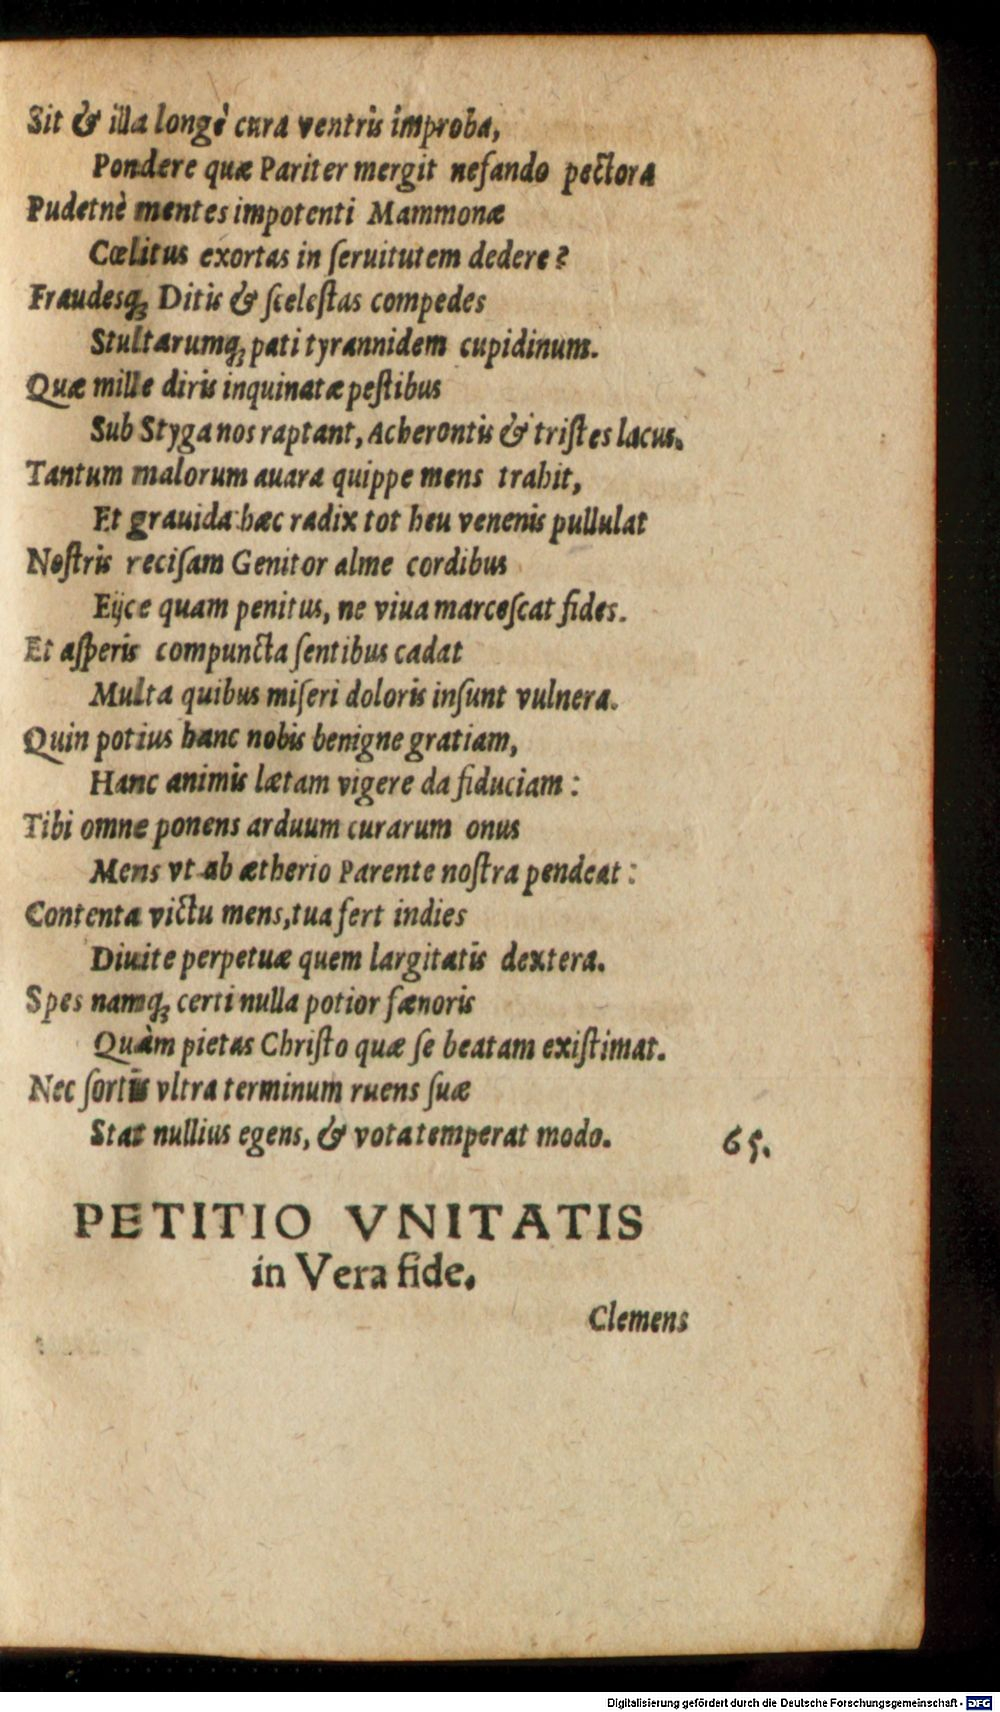 Sit & illa longè cura ventris improba,
Pondere quæ Pariter mergit nefando pectora
Pudetnè mentes impotenti Mammonæ
Cœlitus exortas in ſeruitutem dedere?
Fraudesq; Ditis & ſceleſtas compedes
Stultarumq; pati tyrannidem cupidinum.
Quæ mille diris inquinatæ peſtibus
Sub Styga nos raptant, Acherontis & triſtes lacus.
Tantum malorum auara quippe mens trahit,
Et grauida hæc radix tot heu venenis pullulat
Noſtris reciſam Genitor alme cordibus
Eijce quam penitus, ne viua marceſcat fides.
Et aſperis compuncta ſentibus cadat
Multa quibus miſeri doloris inſunt vulnera.
Quin potius hanc nobis benigne gratiam,
Hanc animis lætam vigere da fiduciam:
Tibi omne ponens arduum curarum onus
Mens vt ab ætherio Parente noſtra pendeat:
Contenta victu mens, tua fert indies
Diuite perpetuæ quem largitatis dextera.
Spes namq; certi nulla potior fænoris
Quàm pietas Chriſto quæ ſe beatam exiſtimat.
Nec ſortis vltra terminum ruens ſuæ
Stat nullius egens, & vota temperat modo.
65.
PETITIO VNITATIS
in Vera fide.
Clemens
Digitalisierung gefördert durch die Deutsche Forschungsgemeinschaft - DFG